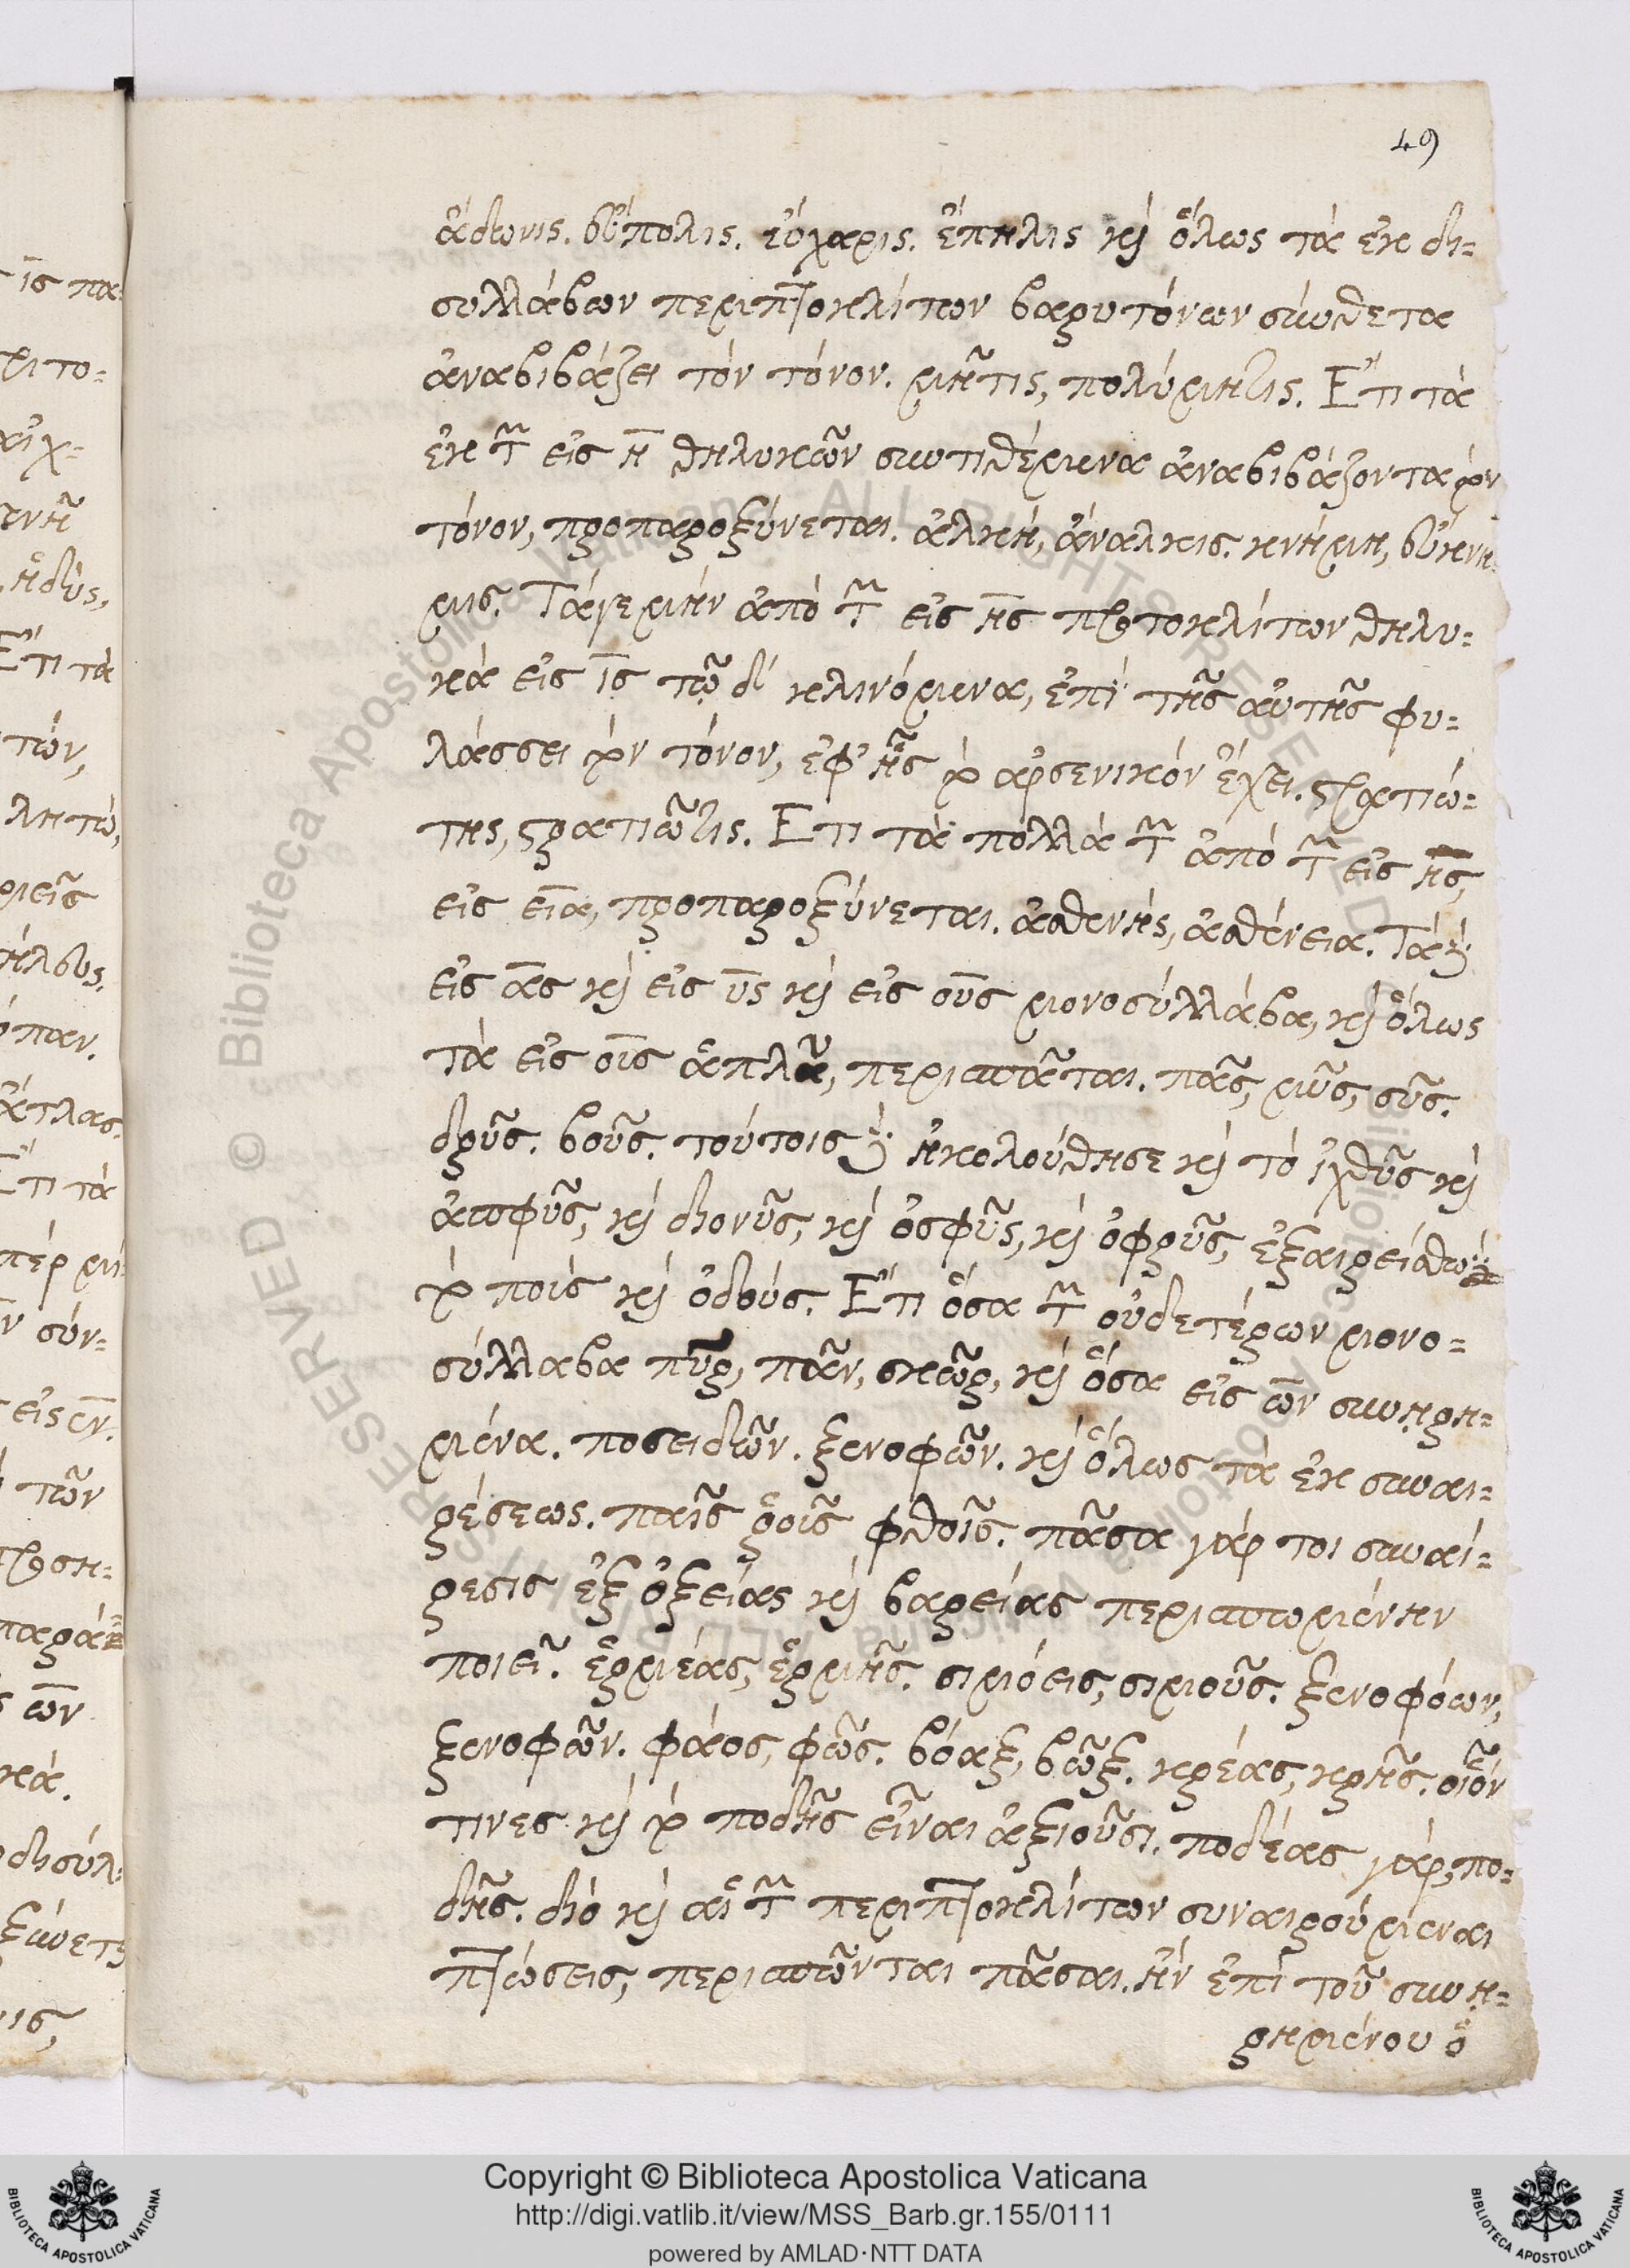 49
ἄδωνις. δύπολις. εὔχαρις. ἔπηλις καὶ ὅλως τὰ ἐκ δι=
συλλάβων περιπτοκλίτων βαρυτόνων σύνθετα
ἀναβιβάζει τὸν τόνον. μῆτις, πολύμητις. Ἔτι τὰ
ἐκ τῶν εἰς η θηλυκῶν συντιθέμενα ἀναβιβάζοντα τὸν
τόνον, προπαροξύνεται. ἀλκή, ἄναλκις. κνήμη, εὔκνη=
μις. Τάγε μὴν ἀπὸ τῶν εἰς ης πρωτοκλίτων θηλυ=
κὰ εἰς ις τῷ δι κλινόμενα, ἐπὶ τῆς αὐτῆς φυ=
λάσσει τὸν τόνον, ἐφ' ἧς τὸ ἀρσενικὸν ἔχει. στρατιώ=
της, στρατιῶτις. Ἔτι τὰ πολλὰ τῶν ἀπὸ τῶν εἰς ης,
εἰς εια, προπαροξύνεται. ἀσθενής, ἀσθένεια. Τὰ δὲ
εἰς ας καὶ εἰς υς καὶ εἰς ους μονοσύλλαβα, καὶ ὅλως
τὰ εἰς οις ἁπλᾶ, περισπᾶται. πᾶς, μῦς, σῦς.
δρῦς. βοῦς. τούτοις δὲ ἠκολούθησε καὶ τὸ ἰχθῦς καὶ
ἀπφῦς, καὶ διονῦς, καὶ ὀσφῦς, καὶ ὀφρῦς, ἐξαιρείσθω δὲ
τὸ ποὺς καὶ ὀδούς. Ἔτι ὅσα τῶν οὐδετέρων μονο=
σύλλαβα πῦρ, πᾶν, σκῶρ, καὶ ὅσα εἰς ων συνῃρη=
μένα. ποσειδῶν. ξενοφῶν. καὶ ὅλως τὰ ἐκ συναι=
ρέσεως. παῖς ῥοῖς φθοῖς. πᾶσα γάρ τοι συναί=
ρεσις ἐξ ὀξείας καὶ βαρείας περισπωμένην
ποιεῖ. ἑρμέας, ἑρμῆς. σιμόεις, σιμοῦς. ξενοφόων,
ξενοφῶν. φάος, φῶς. βόαξ, βῶξ. κρέας, κρῆς. οἷόν
τινες καὶ τὸ ποδῆς εἶναι ἀξιοῦσι. ποδέας γάρ, πο=
δῆς. διὸ καὶ αἱ τῶν περιπτοκλίτων συναιρούμεναι
πτώσεις, περισπῶνται πᾶσαι. ἢν ἐπὶ τοῦ συνῃ=
ρημένου ὁ
Copyright © Biblioteca Apostolica Vaticana
http://digi.vatlib.it/view/MSS_Barb.gr.155/0111
powered by AMLAD·NTT DATA